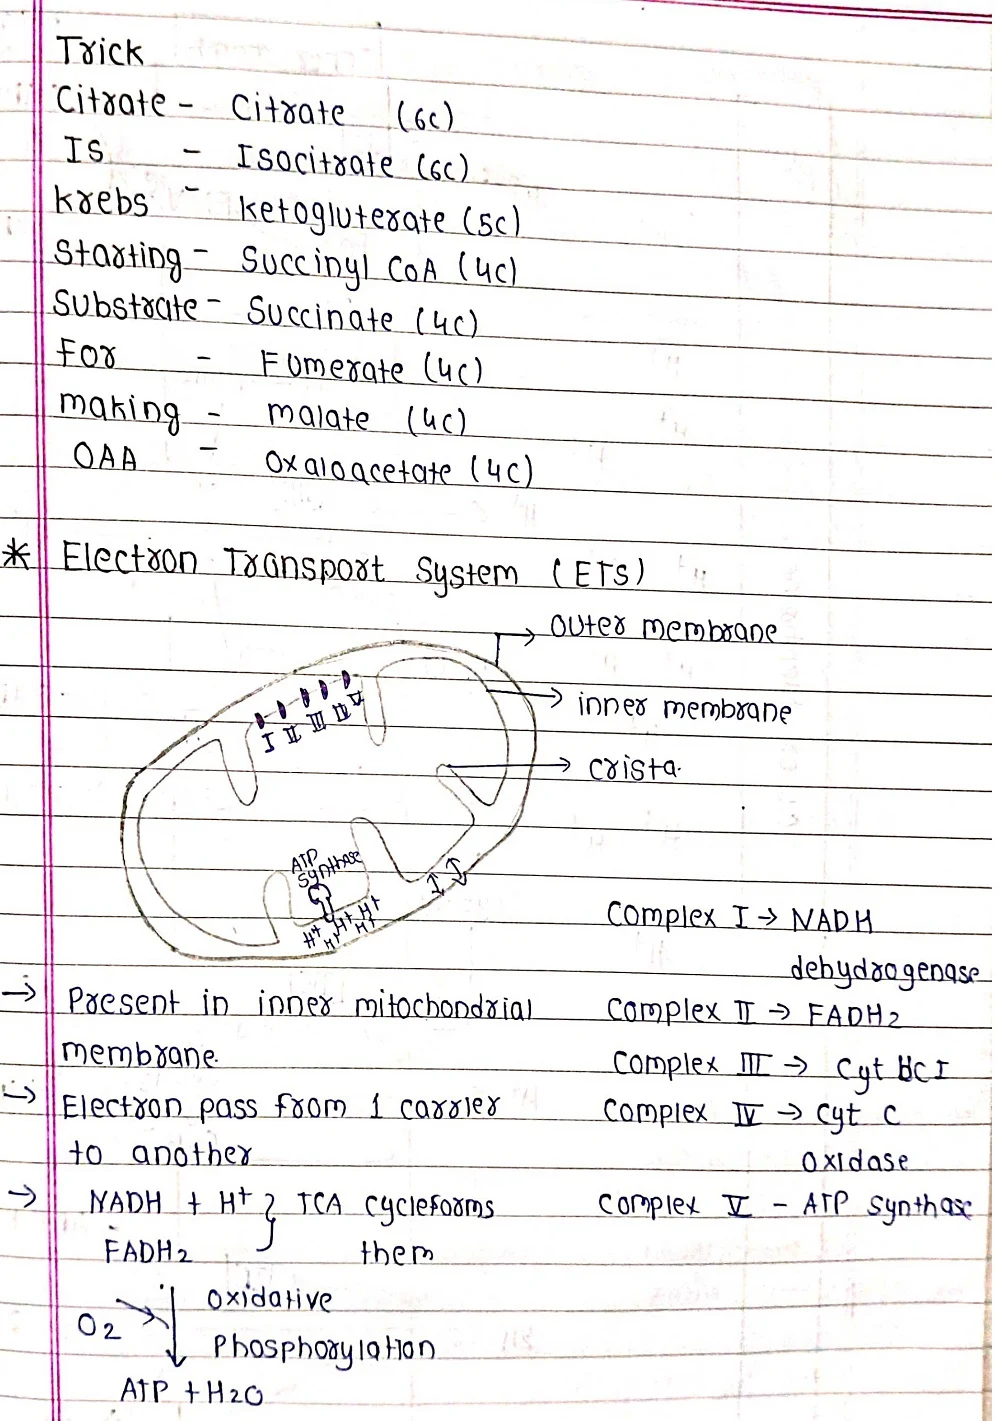 Trick
Citrate - Citrate (6c)
IS - Isocitrate (6c)
krebs - ketogluterate (5c)
Starting - Succinyl CoA (4c)
Substrate - Succinate (4c)
For - Fumerate (4c)
making - malate (4c)
OAA - Oxaloacetate (4c)
* Electron Transport System (ETS)
→ outer membrane
→ inner membrane
→ crista.
I II III IV V
ATP
synthase
H+ H+ H+ H+ H+
I I
Complex I → NADH
dehydrogenase
→ Present in inner mitochondrial
membrane.
Complex II → FADH2
Complex III → Cyt bc I
→ Electron pass from 1 carrier
to another
Complex IV → Cyt c
oxidase
→ NADH + H+ } TCA cycle forms
FADH2 them
Complex V - ATP synthase
O2 → ↓ oxidative
Phosphorylation
ATP + H2O